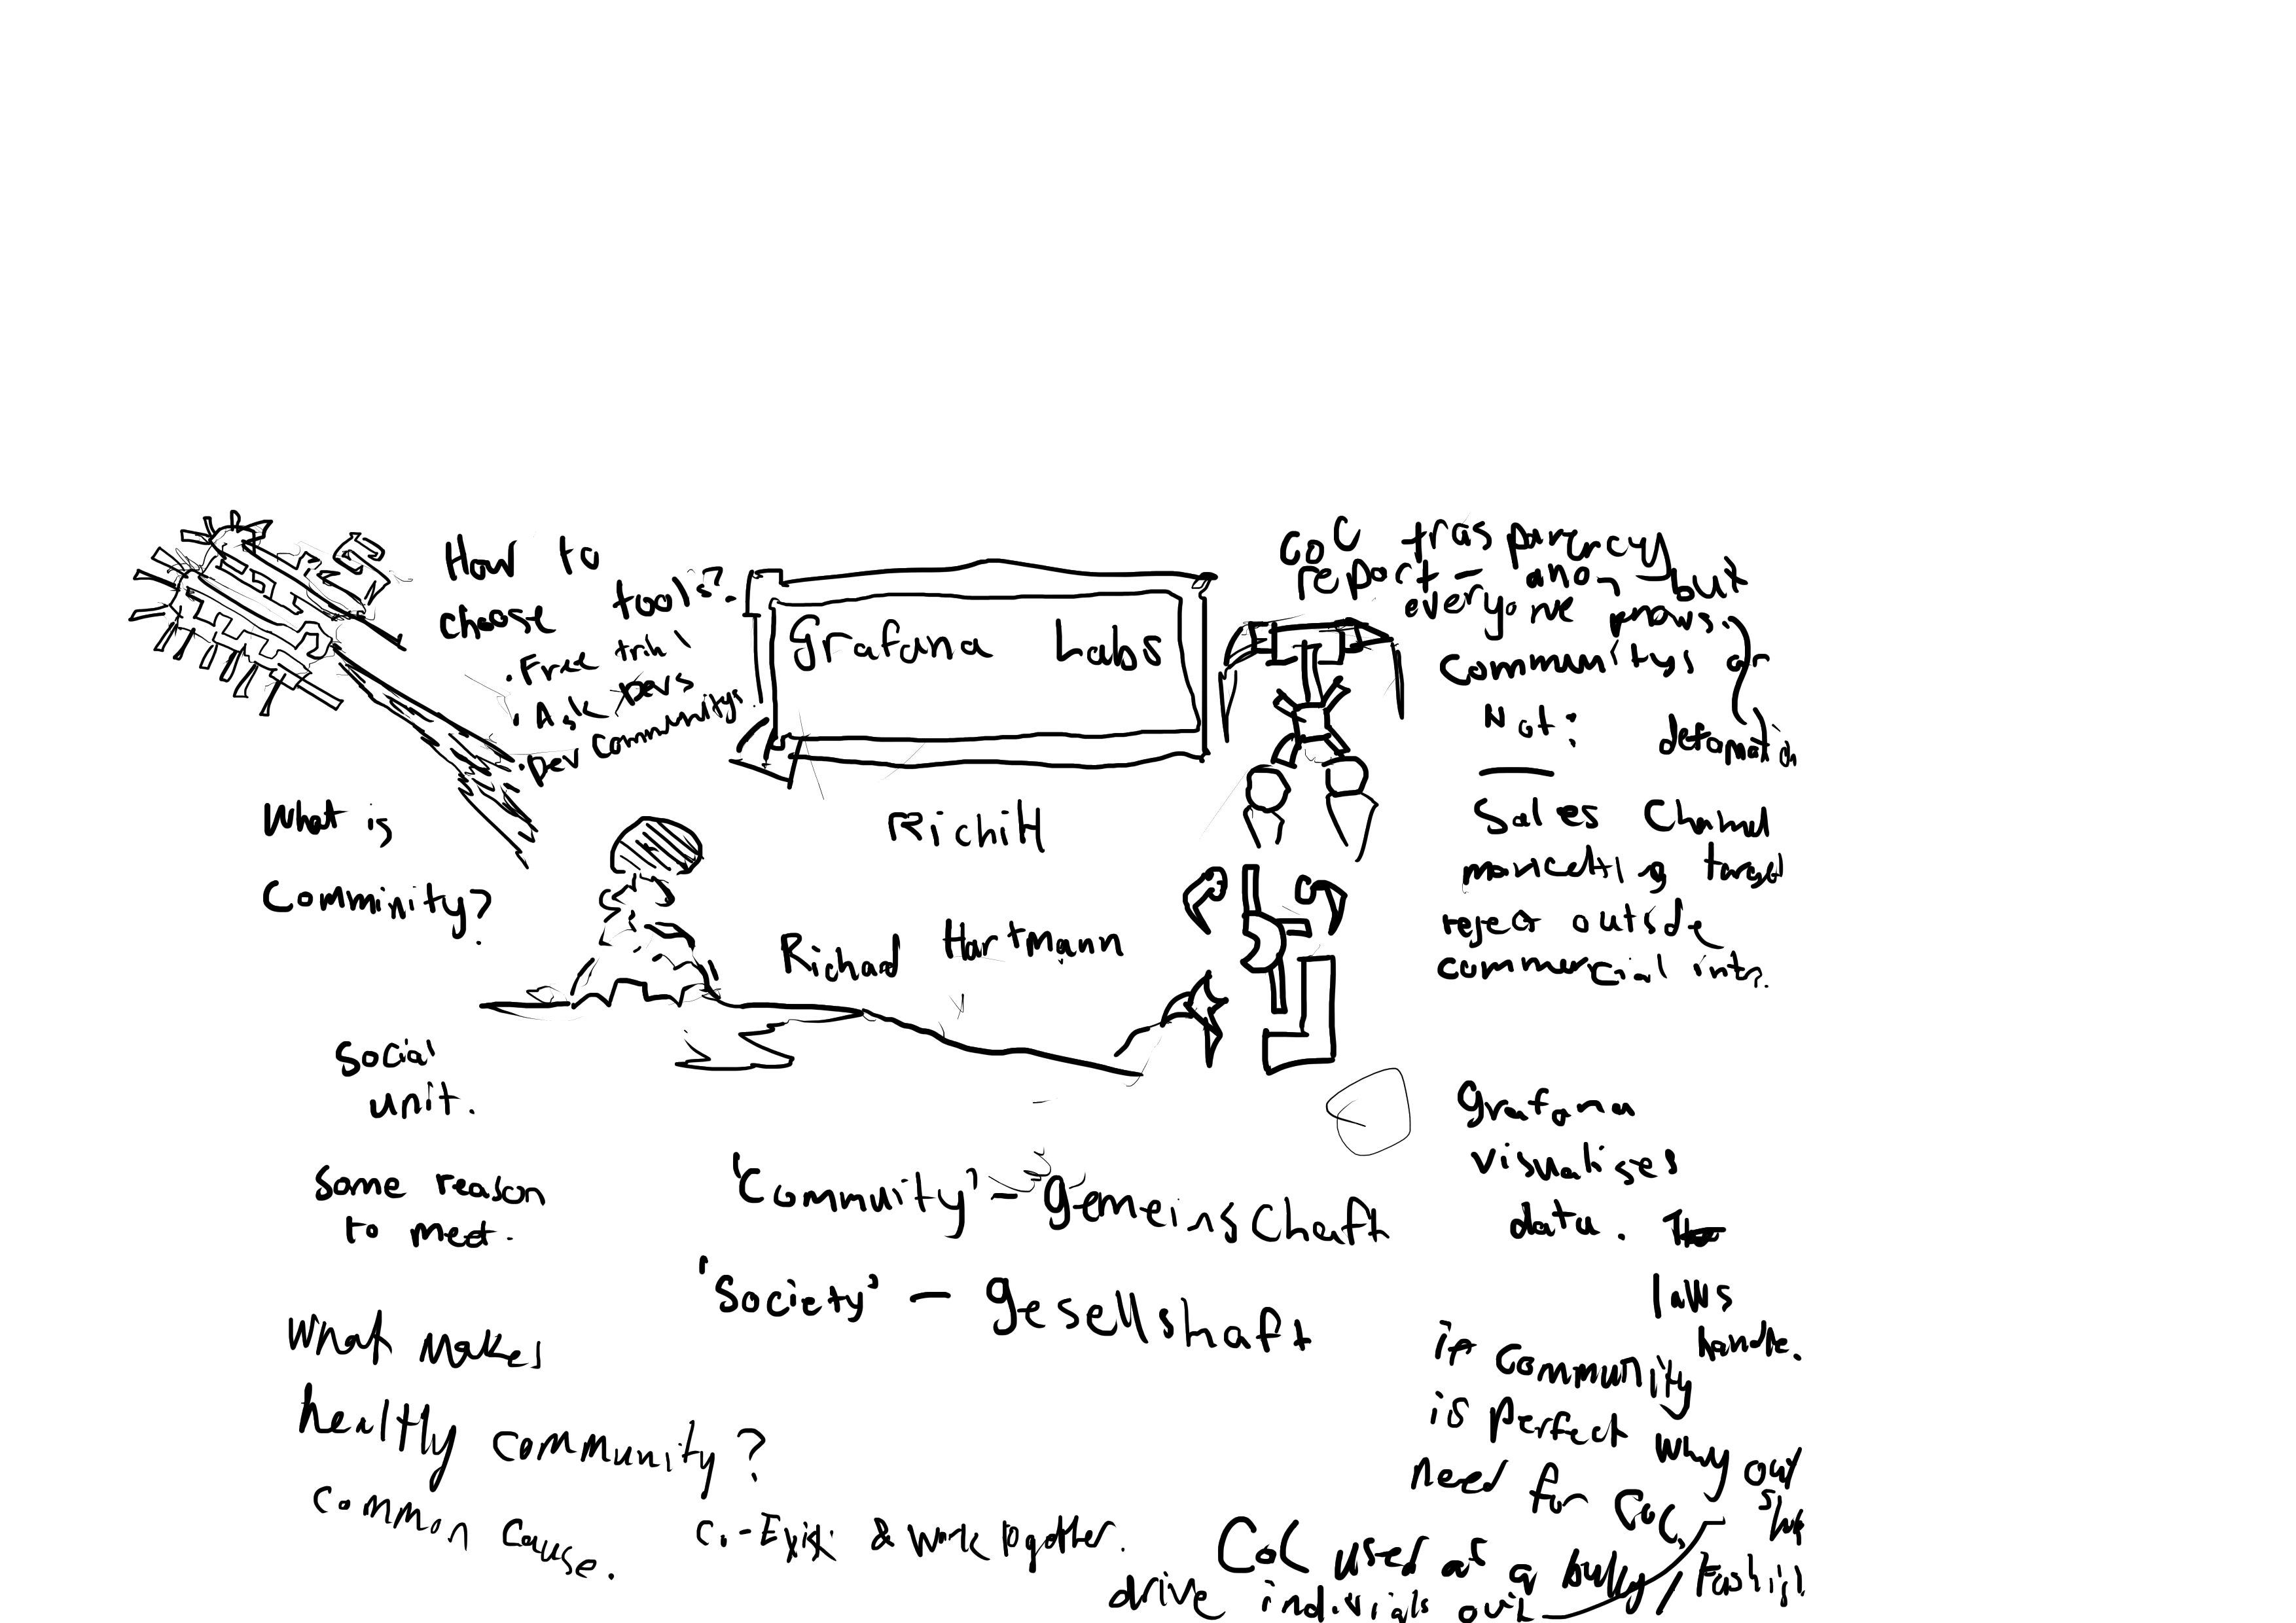 How to
choose tools?
. Free trial
. Ask Devs
. Dev communitys
Grafana Labs
RichiH
Richard Hartmann
CoC trasparency
report - anon, but
everyone knows.
communitys or
Not: defamation
Sales Channel
target
reject outside
commercial
What is
Comminity?
Social
unit.
Some reason
to meet.
'Commuity' - Gemeinschaft
'Society' - Gesellshaft
Grafana
visualises
data.
laws
handle.
What makes
healtly community?
common cause.
Co-Exist & work together.
if community
is perfect why
need for CoC,
CoC used as a bully /
drive out